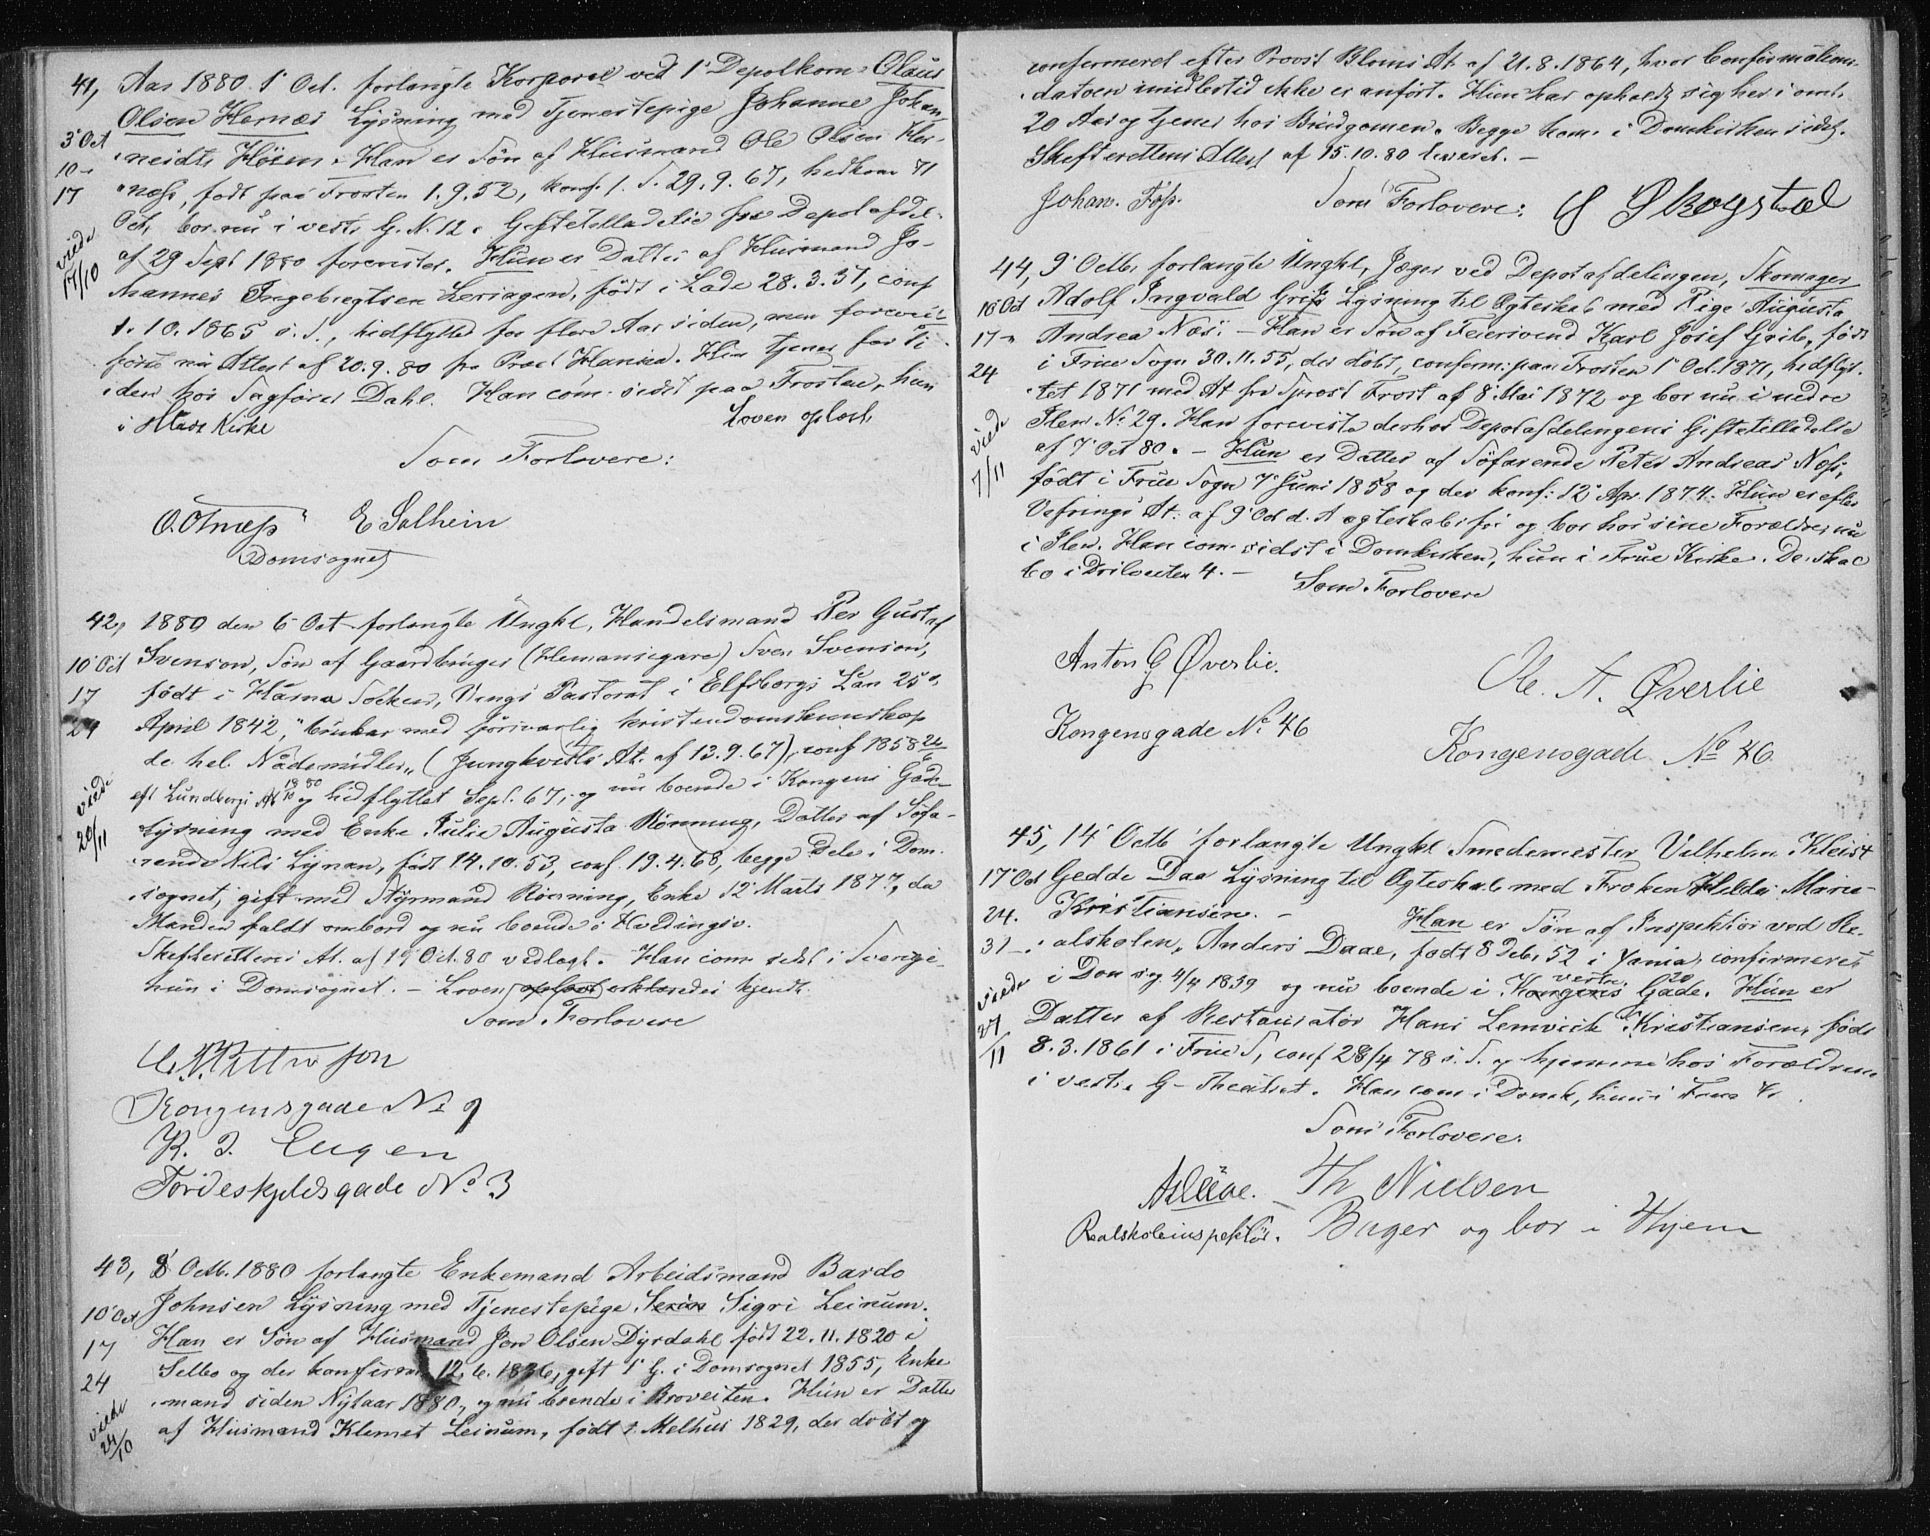 41, Aar 1880 1' Oct. forlangte Korporal ved 1' Depotkom: Olaus
Olsen Hernæs Lysning med Tjenestepige Johanne Johan
3' Oct neidt Høsen. Han er Søn af Husmand Ole Olsen Her-
10 næss, født paa Frosten 1.9.52, konf. 29.9.67, hidkom 71
17 Oct, bor nu i vestr. G. N. 12. Giftetilladelse fra Depotafdel.
viede 17/10 af 29 Sept 1880 forevistes. Hun er Datter af Husmand Jo-
hannes Ingebregtsen født i Lade 28.3.51, conf
1.10.1865 s. S., hidflyttet for flere Aar siden, men
nu Attest af 20.9.80 fra Præst Hansen. Hun tjener for Ti
iden hos Sagfører Dahl. Han com. sidst paa Frosten, hun
i Hlade Kirke Loven oplæst.
Som Forlovere:
O. Olness E Solheim
Domsognet
42, 1880 den 6' Oct forlangte Ungkl. Handelsmand Per Gustaf
10' Oct Svenson, Søn af Gaardbruger (Hemansegare) Sven Svenson,
17 født i Härna Socken, Vings Pastorat i Elfsborgs Län 25'
24 April 1842, "brukar med försvarlig kristendomskunskap
de hel. Nådemidler" (Jungkvists At. af 13.9.67), conf 1858
viede 20/11 eft Lundbergs At og hidflyttet Sept. 67, og nu boende i Kongens Gade
Lysning med Enke Julie Augusta Rønning, Datter af Søfa-
rende Nils Lynan, født 14.10.53, conf. 19.4.68, begge Dele i Dom-
sognet, gift med Styrmand Rønning, Enke 12' Marts 1877, da
Manden faldt ombord og nu boende i Hvedingsv.
Skifterettens At. af 19 Oct. 80 vedlagt. Han com sidst i Sverige
hun i Domsognet. - Loven oplæst erklæredes kjendt.
Som Forlovere
Petterson
Kongensgade No 9
K. J. Eugen
Tordeskjoldsgade No 3
43, 8' Octb. 1880 forlangte Enkemand Arbeidsmand Bardo
10' Oct Johnsen Lysning med Tjenestepige Serin Sigri Leinum.
17 Han er Søn af Husmand Jon Olsen Dyrdahl født 22.11.1820 i
24 Selbo og der konfirm 12.6.1836, gift 1' G. i Domsognet 1855, Enke
mand siden Nytaar 1880, og nu boende i Broveiten. Hun er Datter
viede 24/10 af Husmand Klemet Leinum, født i Melhus 1829, der døbt og
confirmeret efter Provst Bloms At af 21.8.1864, hvor Confirmations-
datoen imidlertid ikke er anført. Hun har opholdt sig her i omt.
20 Aar og tjener hos Brudgomen. Begge kom. i Domkirken sidst.
Skifterettens Attest af 15.10.80 leveret. -
Johan. Foss. Som Forlovere: Skogstad
44, 9' Octb. forlangte Ungkl, Jæger ved Depotafdelingen, Skomager
10 Oct Adolf Ingvald Grib Lysning til Ægteskab med Pige Augusta
17 Andrea Næss. - Han er Søn af Feiersvend Karl Josef Grib, født
24 i Frue Sogn 30.11.55, der døbt, conferm: paa Frosten 1' Oct. 1871, hidflyt-
tet 1871 med At fra Sprost Frost af 8' Mai 1872 og bor nu i nedre
viede 7/11 Ilen No. 29. Han foreviste derhos Depotafdelingens Giftetilladelse
af 7' Oct 80. - Hun er Datter af Søfarende Peter Andreas Næss,
født i Frue Sogn 7' Juni 1858 og der konf: 12' Apr. 1874. Hun er efter
Vefrings At. af 9' Oct d. A ægteskabsfri og bor hos sine Forældre, nu
i Ilen. Han com sidst i Domkirken, hun i Frue Kirke. De skal
bo i Dvilveiten 4. - Som Forlovere
Anton G Øverlie. Ole. A. Øverlie
Kongensgade No 46 Kongensgade No 46
45, 14' Octb forlangte Ungkl Smedemester Vilhelm Kleist
17' Oct Gedde Daa Lysning til Ægteskab med Frøken Helda Marie
24. Kristiansen. - Han er Søn af Inspektør ved Re-
31 alskolen, Anders Daae, født 8 Deb. 52 i Vania, confirmeret
viede 27/11 i Dom sg. 4/4 1839 og nu boende i Kongens vestre Gade 20. Hun er
Datter af Restauratør Hans Lemvick Kristiansen, født
8.3.1861 i Frue S, conf 28/4 78 s. S. og hjemme hos Forældrene
i vestre G- Theatret. Han com i Domk, hun i Frue K.
Som Forlovere:
ADaae. Th Nielsen
Realskoleinspektør. Bager og bor i Hjem